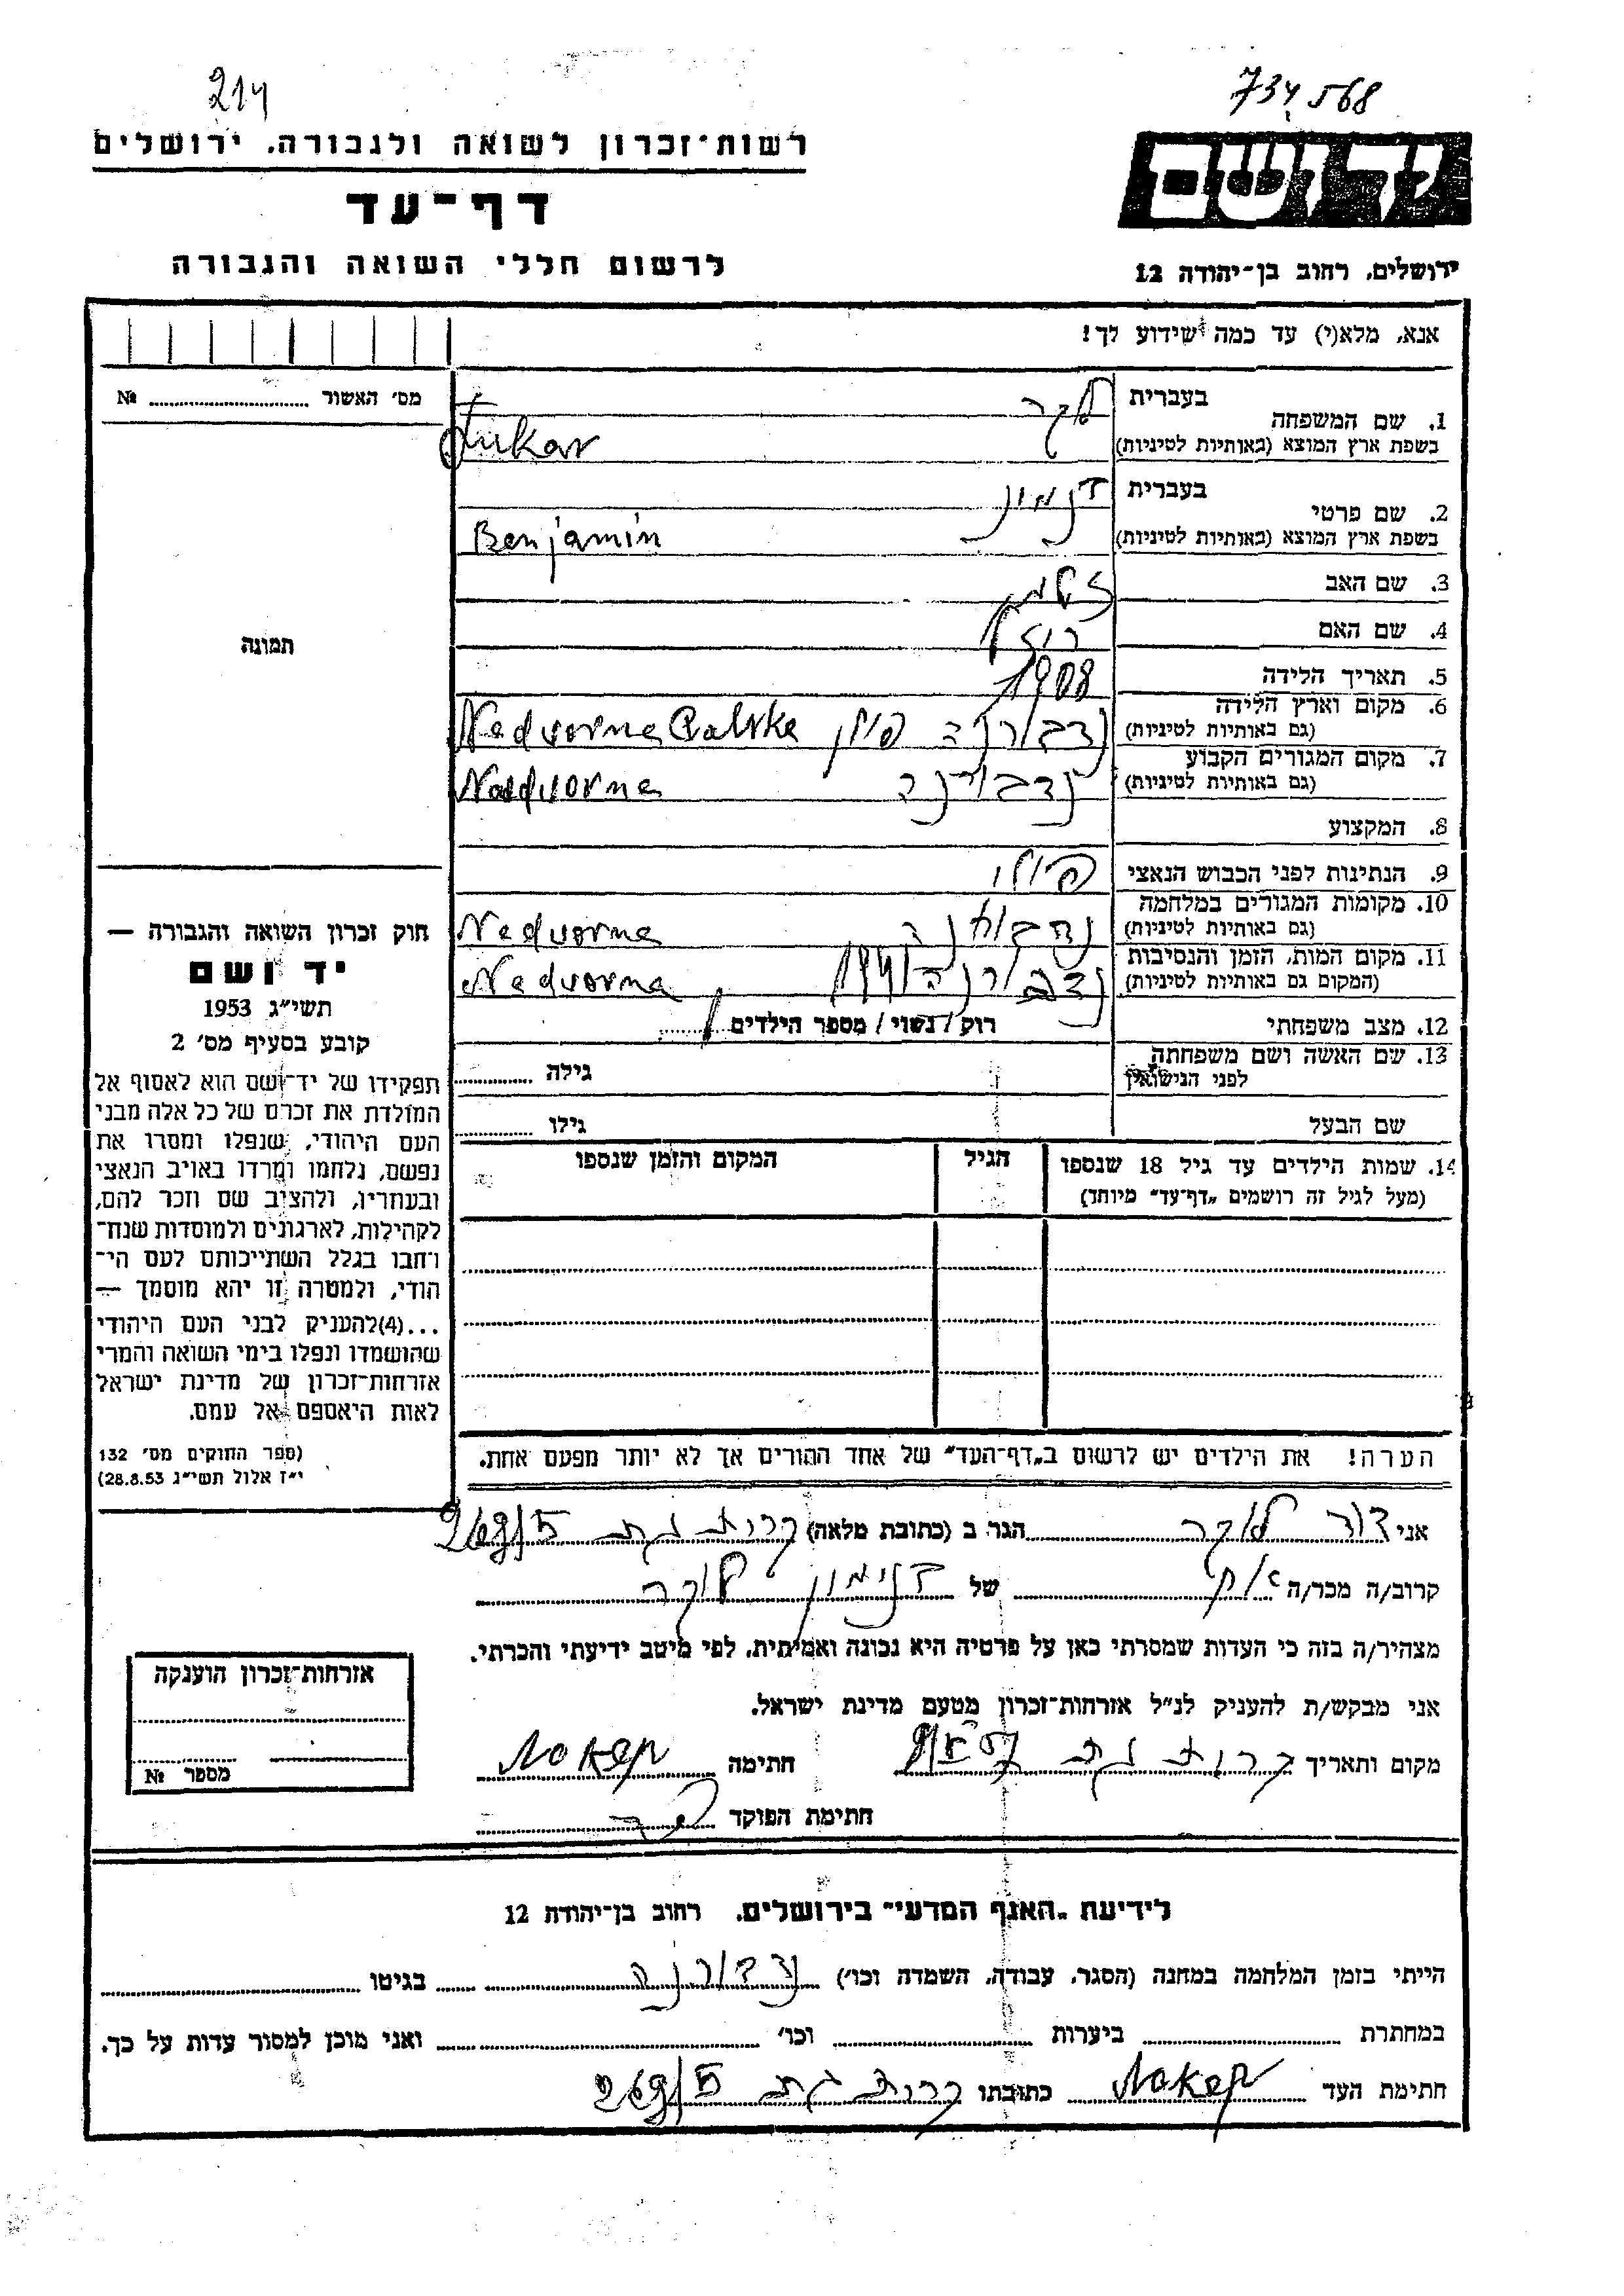 214
734568
רשות־זכרון לשואה ולגבורה, ירושלים
דף־עד
לרשום חללי השואה והגבורה
יד ושם
ירושלים, רחוב בן־יהודה 12
אנא, מלא(י) עד כמה שידוע לך!
מס׳ האשור № 
תמונה
חוק זכרון השואה והגבורה —
יד ושם
תשי״ג 1953
קובע בסעיף מס׳ 2
תפקידו של יד־ושם הוא לאסוף אל
המולדת את זכרם של כל אלה מבני
העם היהודי, שנפלו ומסרו את
נפשם, נלחמו ומרדו באויב הנאצי
ובעוזריו, ולהציב שם וזכר להם,
לקהילות, לארגונים ולמוסדות שנח־
רבו בגלל השתייכותם לעם הי־
הודי, ולמטרה זו יהא מוסמך —
...(4)להעניק לבני העם היהודי
שהושמדו ונפלו בימי השואה והמרי
אזרחות־זכרון של מדינת ישראל
לאות היאספם אל עמם.
(ספר החוקים מס׳ 132
י״ז אלול תשי״ג 28.8.53)
1. שם המשפחה בעברית לוקר
בשפת ארץ המוצא (באותיות לטיניות) Lukar
2. שם פרטי בעברית בנימין
בשפת ארץ המוצא (באותיות לטיניות) Benjamin
3. שם האב
4. שם האם רוזה
5. תאריך הלידה 1908
6. מקום וארץ הלידה נדבורנה פולין Nedvorna
(גם באותיות לטיניות)
7. מקום המגורים הקבוע נדבורנה Nadvorna
(גם באותיות לטיניות)
8. המקצוע
9. הנתינות לפני הכבוש הנאצי פולני
10. מקומות המגורים במלחמה Nedvorna
(גם באותיות לטיניות)
11. מקום המות, הזמן והנסיבות נדבורנה 1941 Nedvorna
(המקום גם באותיות לטיניות)
12. מצב משפחתי רוק / נשוי / מספר הילדים
13. שם האשה ושם משפחתה גילה
לפני הנישואין
שם הבעל גילו
14. שמות הילדים עד גיל 18 שנספו הגיל המקום והזמן שנספו
(מעל לגיל זה רושמים „דף־עד״ מיוחד)
הערה! את הילדים יש לרשום ב„דף־העד״ של אחד ההורים אך לא יותר מפעם אחת.
אני דוד לוקר הגר ב (כתובת מלאה) קרית גת
קרוב/ה מכר/ה אח של בנימין לוקר
מצהיר/ה בזה כי העדות שמסרתי כאן על פרטיה היא נכונה ואמיתית, לפי מיטב ידיעתי והכרתי.
אני מבקש/ת להעניק לנ״ל אזרחות־זכרון מטעם מדינת ישראל.
מקום ותאריך קרית גת חתימה
חתימת הפוקד
אזרחות־זכרון הוענקה
מספר №
לידיעת „האגף המדעי״ בירושלים, רחוב בן־יהודה 12
הייתי בזמן המלחמה במחנה (הסגר, עבודה, השמדה וכו׳) נדבורנה בגיטו
במחתרת ביערות וכו׳ ואני מוכן למסור עדות על כך.
חתימת העד כתובתו קרית גת